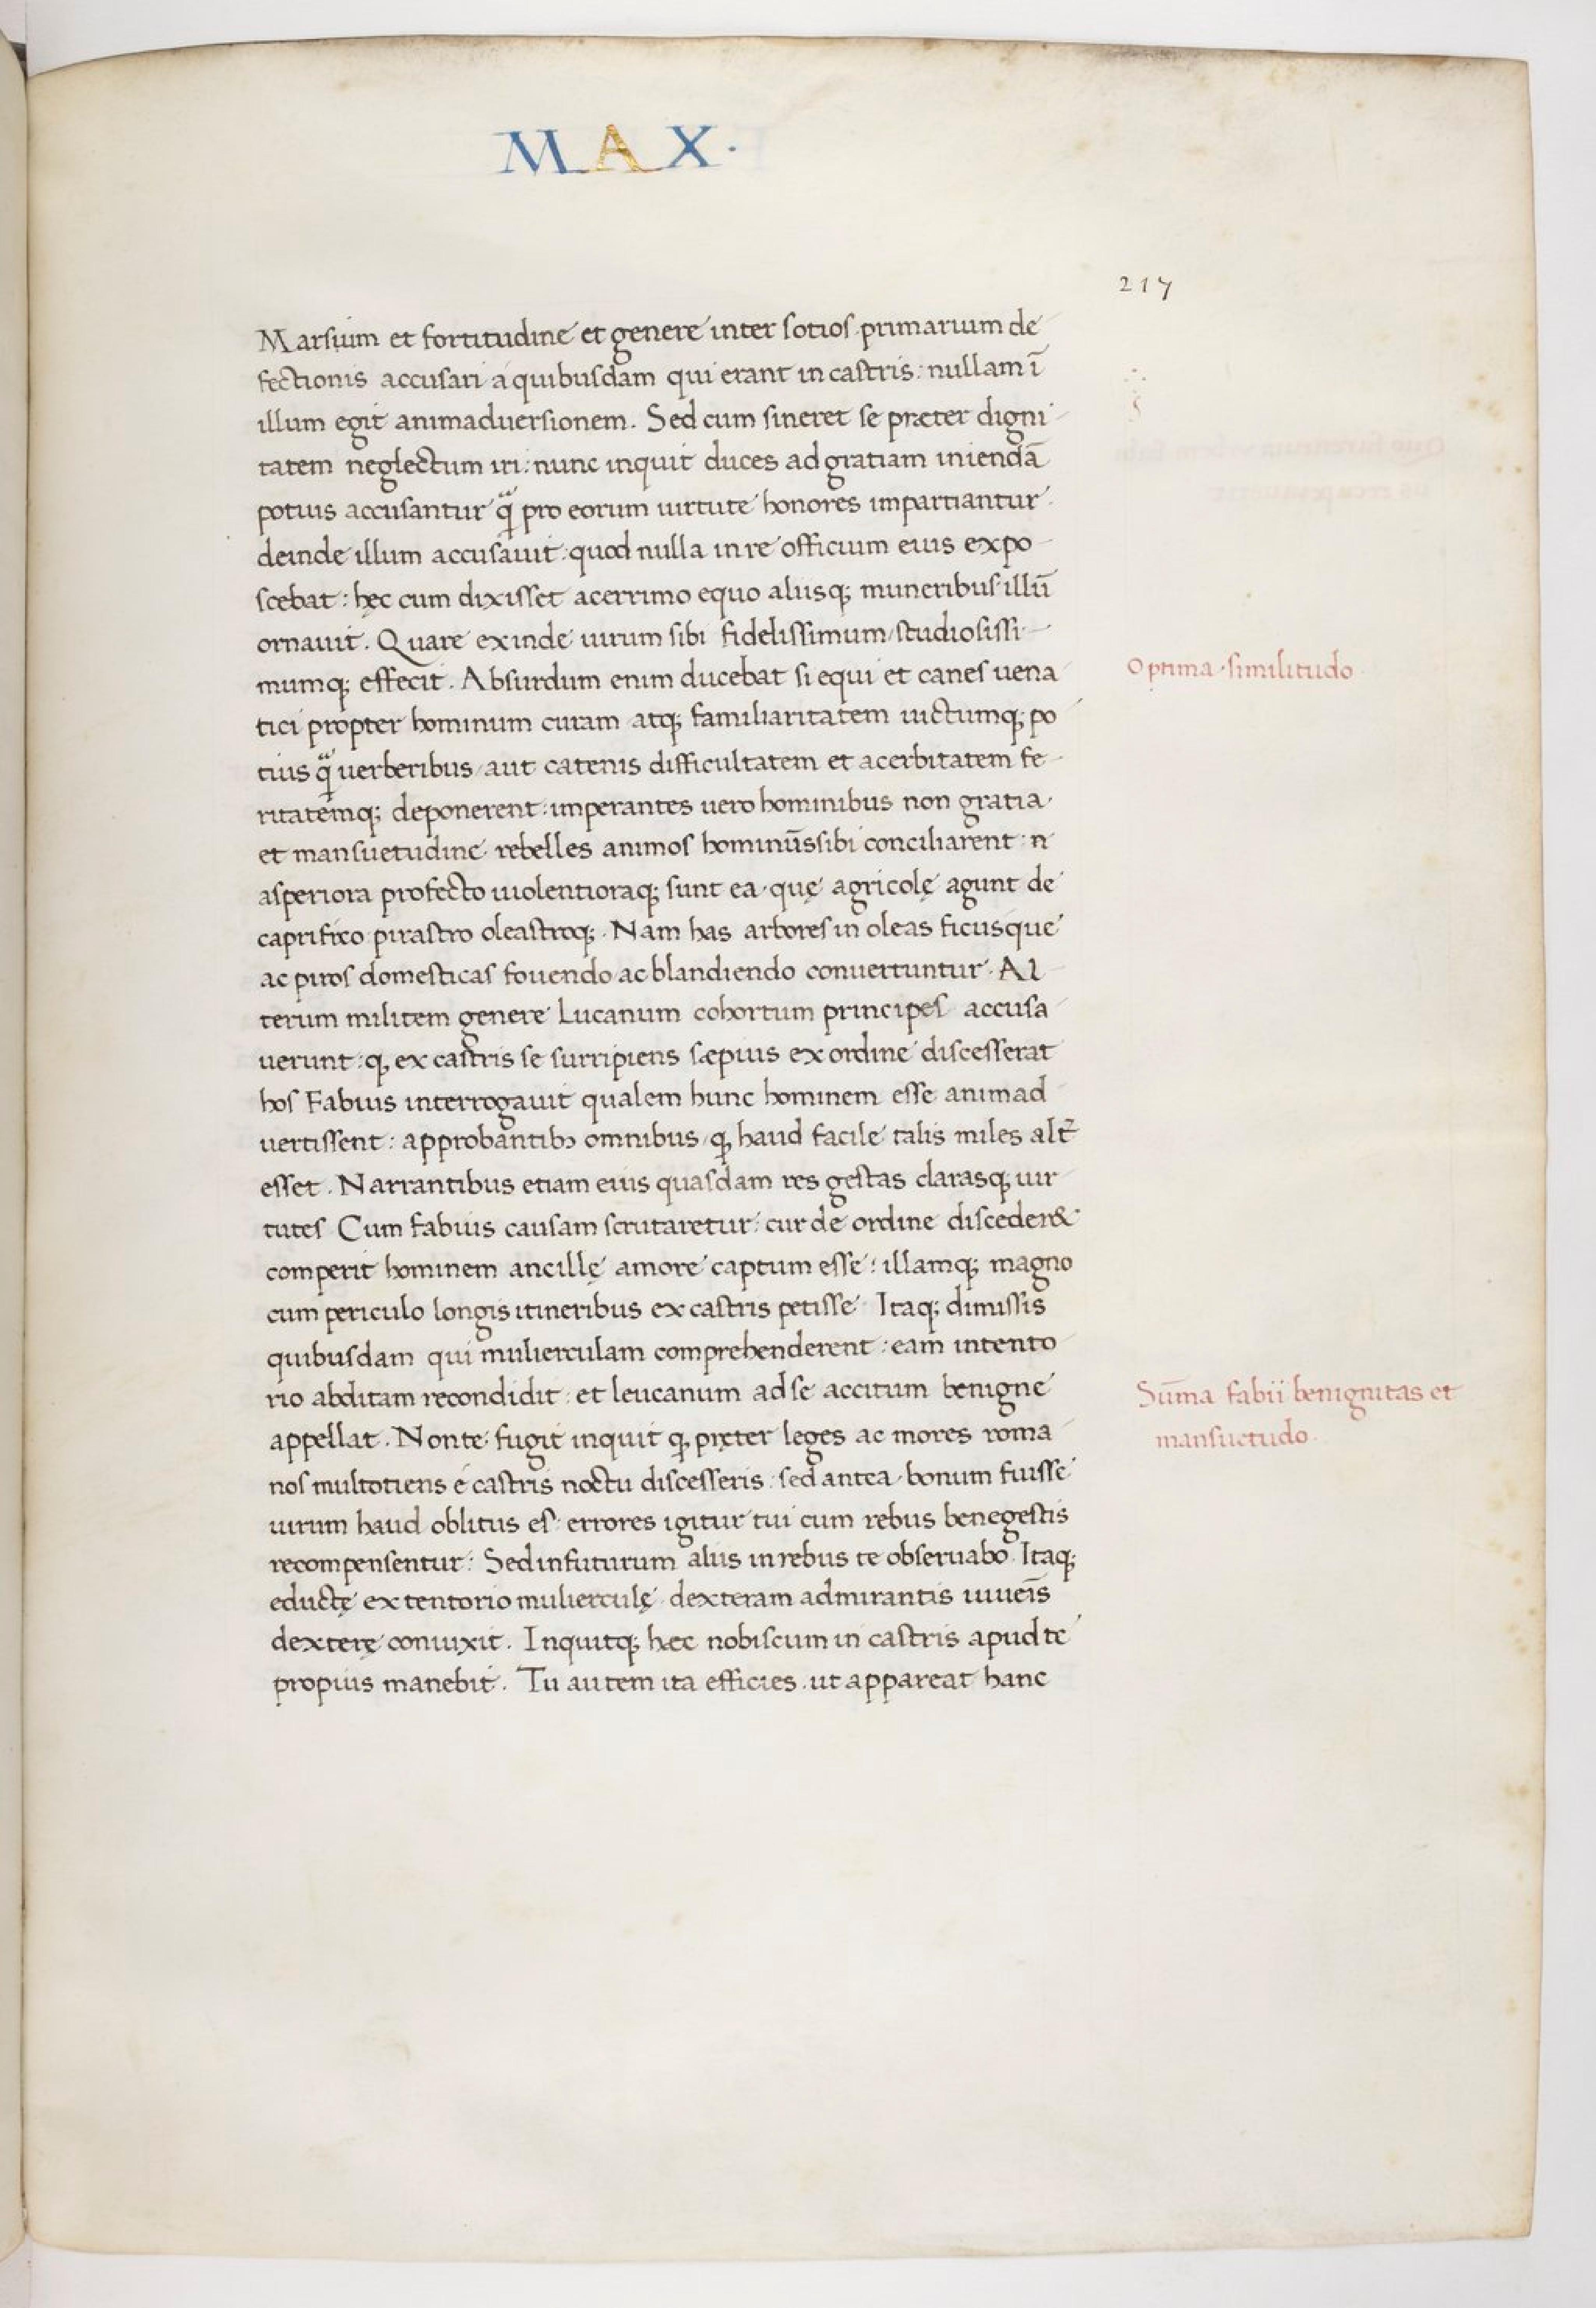 MAX·
217
Marsum et fortitudine et genere inter sotios primarium de
fectionis accusari a quibusdam qui erant in castris: nullam ī
illum egit animaduersionem. Sed cum sineret se præter digni
tatem neglectum iri: nunc inquit duces ad gratiam iniendā
potius accusantur q̃ pro eorum uirtute honores impartiantur.
deinde illum accusauit: quod nulla in re officium eius expo
scebat: hęc cum dixisset acerrimo equo aliisq; muneribus illū
ornauit. Quare exinde uirum sibi fidelissimum/studiosissi
mumq; effecit. Absurdum enim ducebat si equi et canes uena
Optima similitudo
tici propter hominum curam atq; familiaritatem uictumq; po
tius q̃ uerberibus/aut catenis difficultatem et acerbitatem fe
ritatemq; deponerent: imperantes uero hominibus non gratia
et mansuetudine rebelles animos hominū sibi conciliarent: n̄
asperiora profecto uiolentioraq; sunt ea quę agricolę agunt de
caprifico pirastro oleastroq;. Nam has arbores in oleas ficusque
ac piros domesticas fouendo ac blandiendo conuertuntur. Al
terum militem genere Lucanum cohortum principes accusa
uerunt: q, ex castris se surripiens sæpius ex ordine discesserat
hos Fabius interrogauit qualem hunc hominem esse animad
uertissent: approbantibꝰ omnibus q, haud facile talis miles alt̃
esset. Narrantibus etiam eius quasdam res gestas clarasq; uir
tutes Cum fabius causam scrutaretur: cur de ordine disceder&
comperit hominem ancillę amore captum esse: illamq; magno
cum periculo longis itineribus ex castris petisse Itaq; dimissis
quibusdam qui mulierculam comprehenderent: eam in tento
rio abditam recondidit: et leucanum ad se accitum benigne
Sūma fabii benignitas et
mansuetudo.
appellat. Non te fugit inquit q, pręter leges ac mores roma
nos multotiens e castris noctu discesseris: sed antea bonum fuisse
uirum haud oblitus es: errores igitur tui cum rebus benegestis
recompensentur: Sed in futurum aliis in rebus te obseruabo. Itaq;
eductę ex tentorio mulierculę dexteram admirantis iuueīs
dexterę coniuxit. Inquitq; hæc nobiscum in castris apud te
propius manebit. Tu autem ita efficies ut appareat hanc